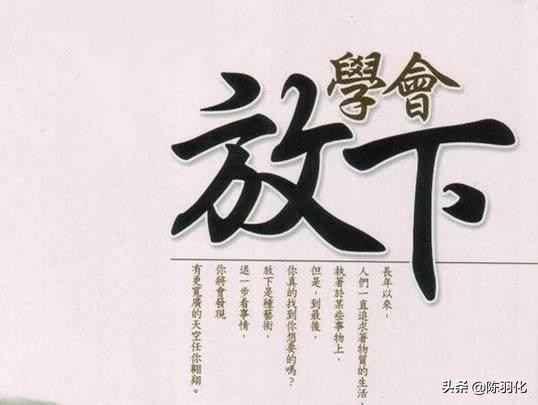 學會
放下
長年以來，
人們一直追求著物質的生活，
執著於某些事物上，
但是，到最後，
你真的找到你想要的嗎？
放下是種藝術，
退一步看事情，
你將會發現
有更寬廣的天空任你翱翔。
头条 @陈羽化